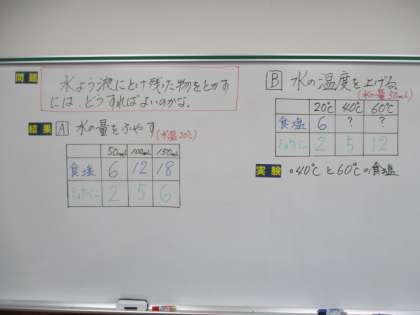 問題
水よう液にとけ残った物をとかす
には、どうすればよいのかな。
結果 A 水の量をふやす (水温20℃)
50mL 100mL 150mL
食塩 6 12 18
ミョウバン 2 5 6
B 水の温度を上げる
(水の量50mL)
20℃ 40℃ 60℃
食塩 6 ? ?
ミョウバン 2 5 12
実験 ・40℃と60℃の食塩